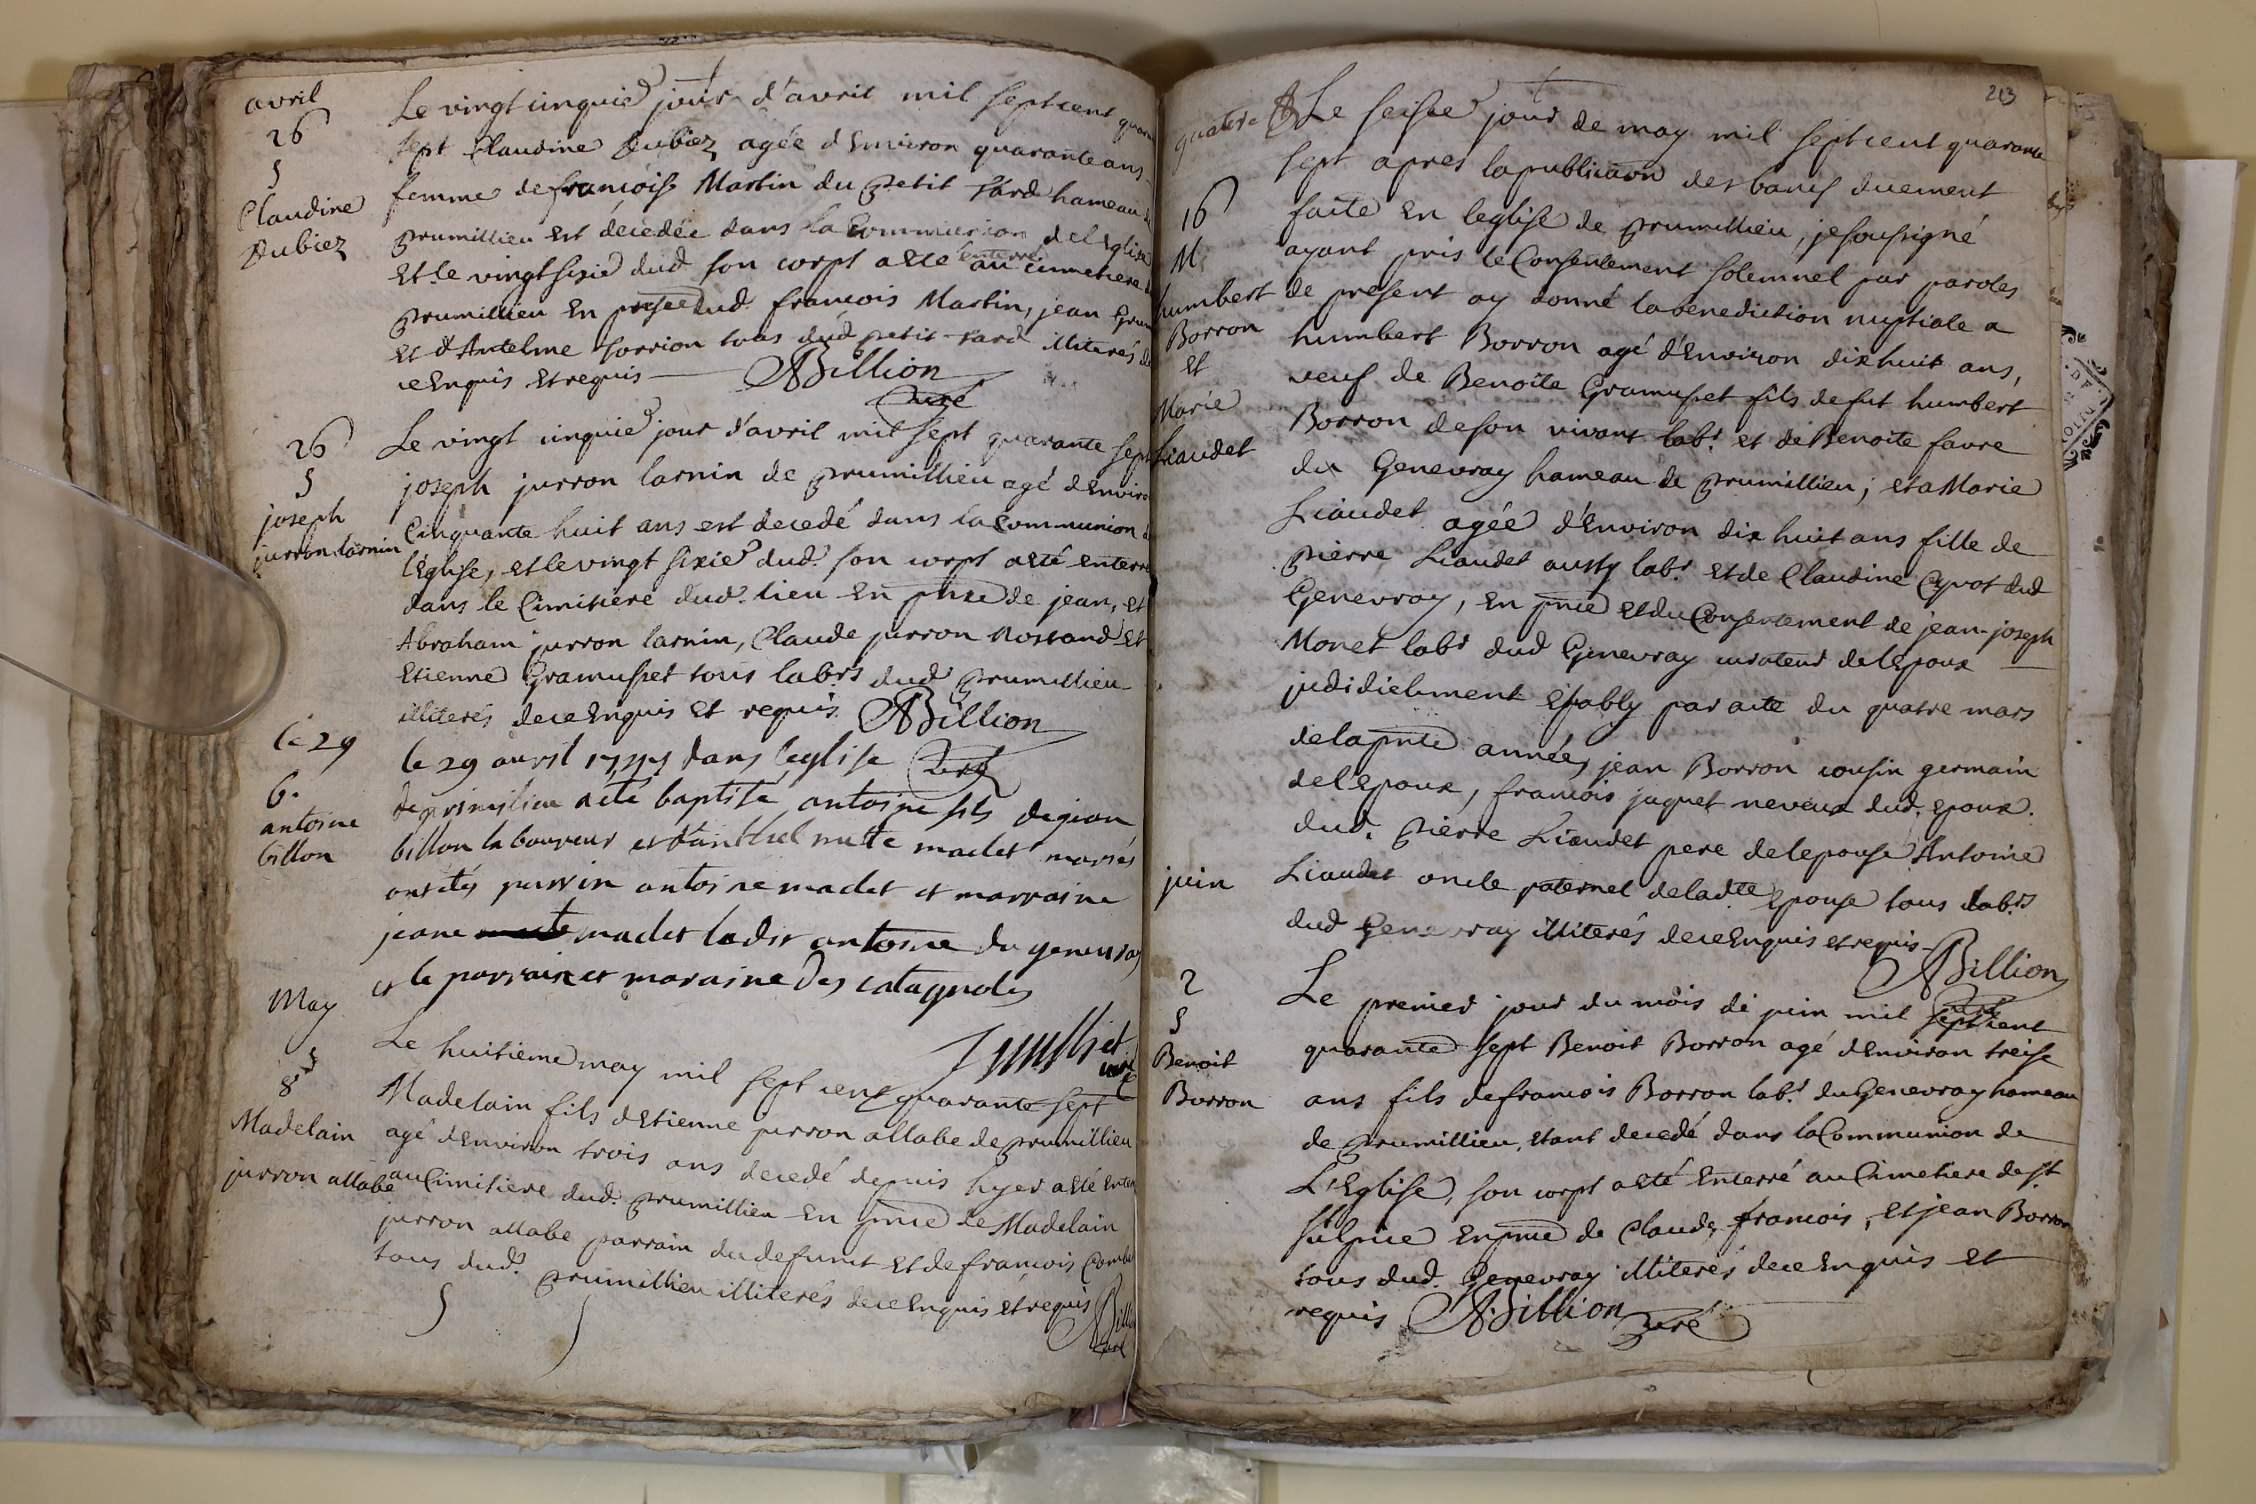 avril
26
S
Claudine
Dubiez
Le vingt cinquie jour d'avril mil sept cent
sept Claudine Dubiez agée d'Environ quarante ans
femme de francois Martin du petit tard hameau
prumillieu Est décédée dans la Communion de l'Eglise
Et le vingt sixie dud. son corps a eté enterré au cimetiere
prumillieu En pnce dud. francois Martin, jean
Et d'Antelme Sorrion tous dud petit tard illiterés de
ce Enquis Et requis ABillion
Curé
26
S
joseph
jurron larnin
Le vingt cinquie jour d'avril mil sept quarante sept
joseph jurron larnin de prumillieu agé d'Environ
Cinquante huit ans est decedé dans la Communion
l'Eglise, et le vingt sixie dud. son corps a eté enterré
dans le Cimitiere dud. lieu En pnce de jean, et
Abraham jurron larnin, Claude jurron Rostand Et
Etienne Gramusset tous labrs dud prumillieu
illiterés de ce Enquis Et requis. ABillion
Curé
le 29
b.
antoine
billon
le 29 avril 1747 dans leglise
de primilieu a eté baptisé antoine fils de jean
billon laboureur et d'anthelmette madet mariés
ont étés parrin antoine madet et marraine
jeane madet ledit antoine du genevray
et le parrain et maraine des catagnoles
curé
May
S
8
Madelain
jurron allabe
Le huitieme may mil sept cent quarante sept
Madelain fils d'Etienne jurron allabe de prumillieu
agé d'Environ trois ans decedé depuis hyer a eté
au Cimitiere dud. prumillieu En pnce de Madelain
jurron allabe parrain du defunt Et de francois
tous dud. prumillieu illiterés de ce Enquis et requis
ABillion
Curé
213
quatre
16
M.
humbert
Borron
et
Marie
Liaudet
Le seisie jour de may mil sept cent quarante
sept apres la publicaon des bancs duement
faite En leglise de prumillieu, je soussigné
ayant pris le Consentement solemnel par paroles
de present ay donné la benediction nuptiale a
humbert Borron agé d'Environ dix huit ans,
veuf de Benoite Gramusset fils de fut humbert
Borron de son vivant labr. et de Benoite favre
du Genevray hameau de prumillieu; et a Marie
Liaudet agée d'Environ dix huit ans fille de
pierre Liaudet aussy labr. et de Claudine Cyvot dud
Genevray, En pnce et du Consentement de jean-joseph
Monet labr dud Genevray curateur de l'Epoux
judidielement Etably par acte du quatre mars
de la pnte année, jean Borron cousin germain
de l'Epoux, francois jaquet neveux dud. epoux.
dud. pierre Liaudet pere de lepouse Antoine
Liaudet oncle paternel de ladte Epouse tous labrs
dud Genevray illiterés de ce Enquis et requis
ABillion
Curé
juin
2
S
Benoit
Borron
Le premier jour du mois de juin mil sept cent
quarante sept Benoit Borron agé d'Environ treise
ans fils de francois Borron labr. du Genevray hameau
de prumillieu, etant decedé dans la Communion de
L'Eglise, son corps a eté Enterré au Cimetiere de st.
sulpice En pnce de Claude, francois, et jean Borron
tous dud. Genevray illiterés de ce Enquis et
requis ABillion Curé